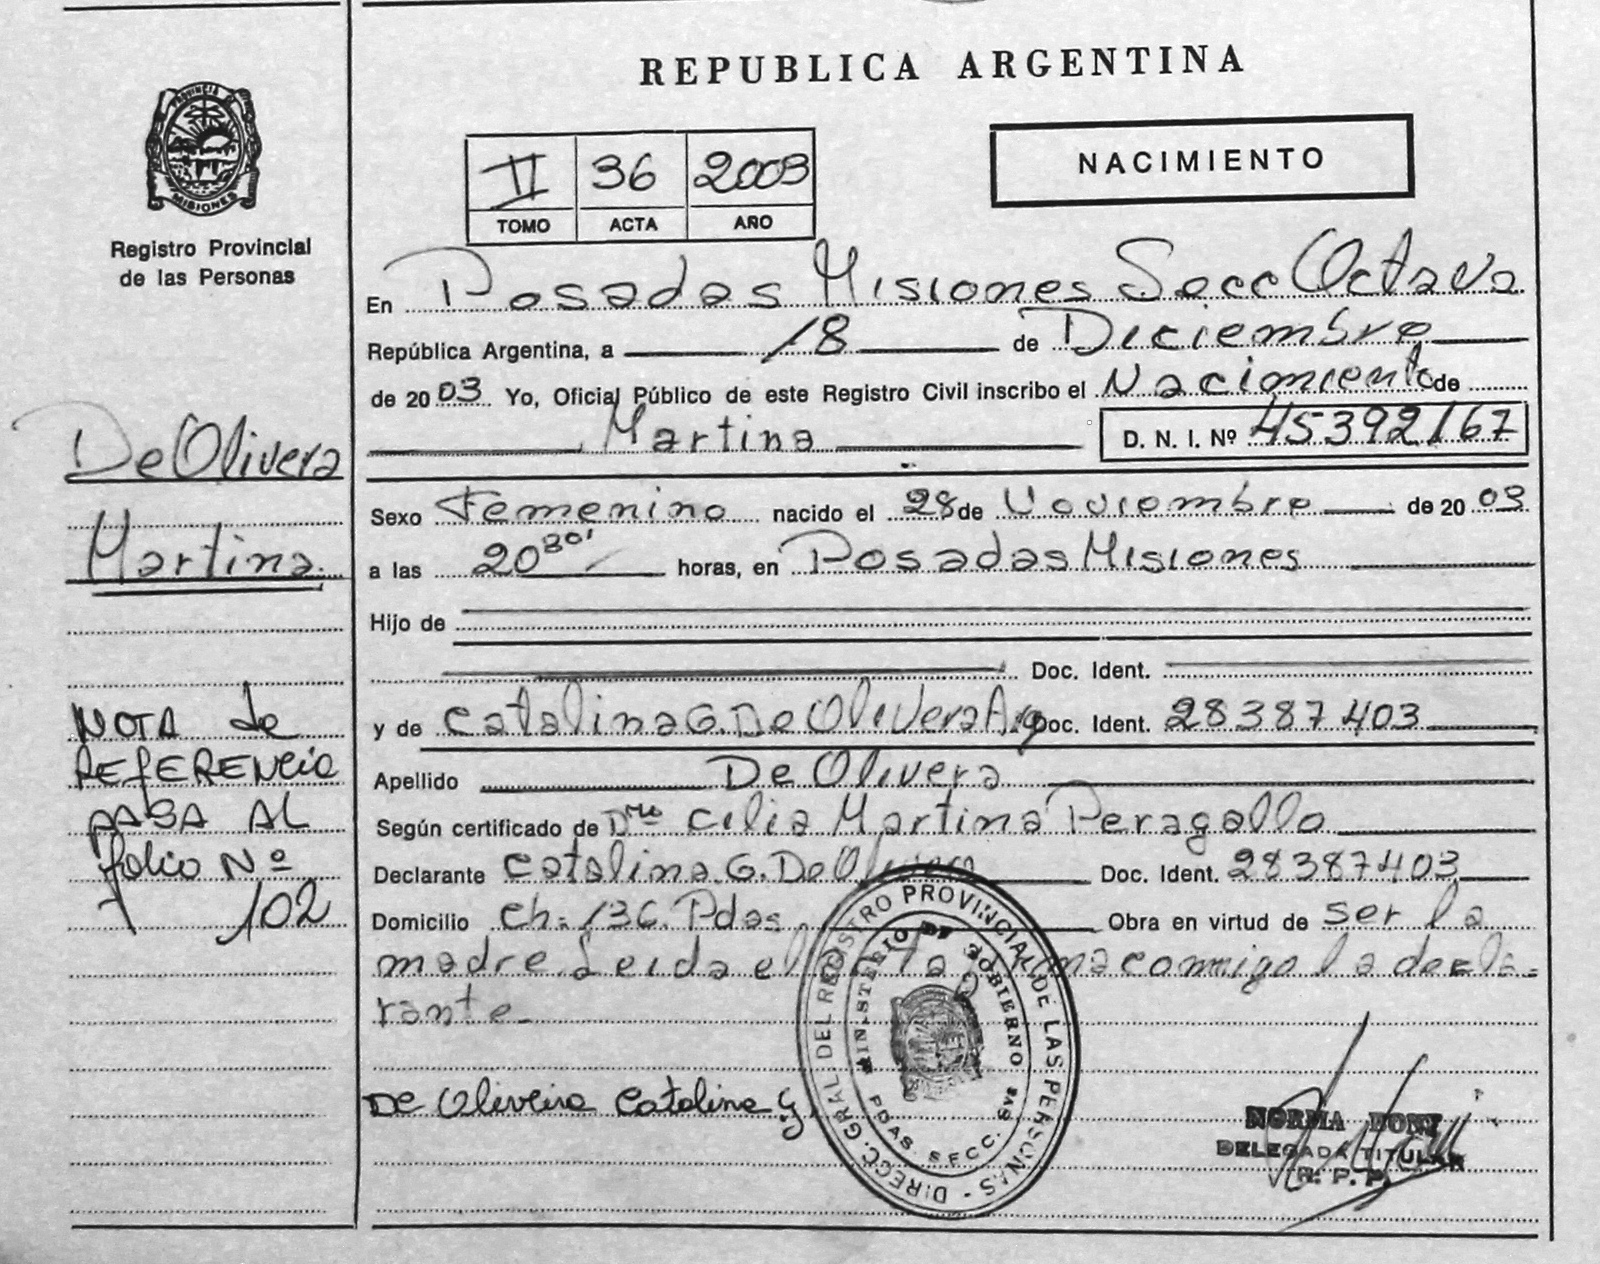 REPUBLICA ARGENTINA
PROVINCIA DE
MISIONES
Registro Provincial
de las Personas
II 36 2003
TOMO ACTA AÑO
NACIMIENTO
En Posadas Misiones Secc Octava
República Argentina, a 18 de Diciembre
de 2003 Yo, Oficial Público de este Registro Civil inscribo el Nacimiento de
Martina D. N. I. Nº 45392167
De Olivera
Martina
Sexo Femenino nacido el 28 de Noviembre de 2003
a las 20 30' horas, en Posadas Misiones
Hijo de
Doc. Ident.
y de Catalina G. De Olivera Arg Doc. Ident. 28387403
Apellido De Olivera
Según certificado de Dra Celia Martina Peragallo
Declarante Catalina G. De Olivera Doc. Ident. 28387403
Domicilio Ch: 136. Pdas. Obra en virtud de ser la
madre. Leida el acta firma conmigo la decla=
rante.
NOTA de
REFERENCIA
PASA AL
folio Nº
102
De Oliveira Catalina G.
DIRECC. GRAL DEL REGISTRO PROVINCIAL DE LAS PERSONAS -
MINISTERIO DE GOBIERNO
PDAS. SECC. 8va
NORMA BONY
DELEGADA TITULAR
R. P. P.